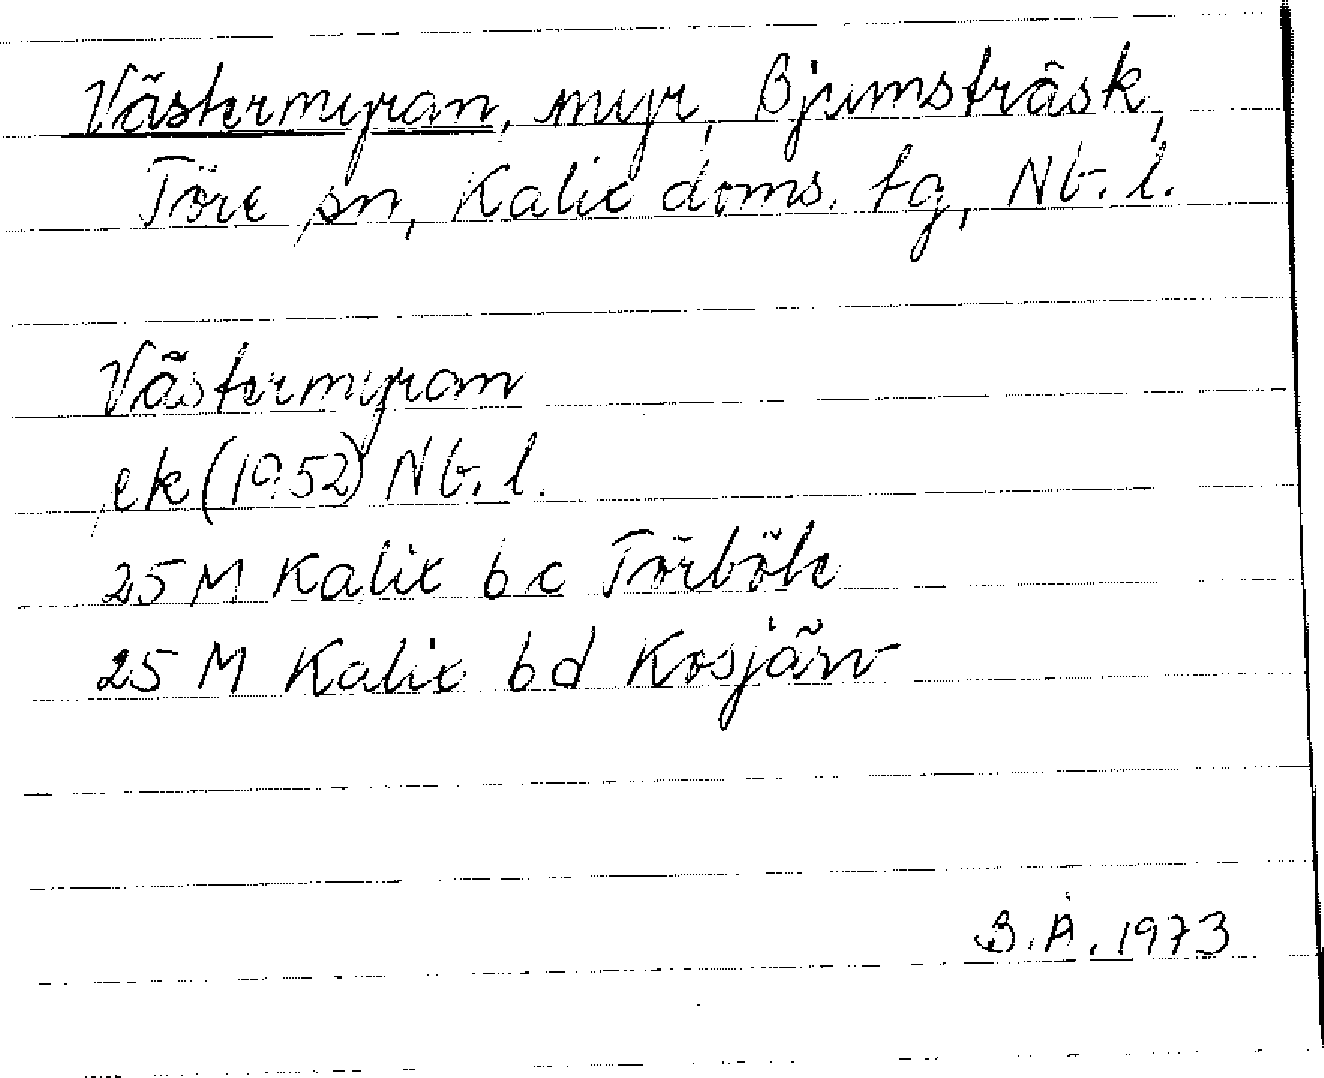 Västermyran, myr, Bjumsträsk,
Töre sn, Kalix doms. tg, Nb. l.
Västermyran
ek (1952) Nb. l.
25 M Kalix b c Törböle
25 M Kalix b d Kosjärv
B. Å. 1973